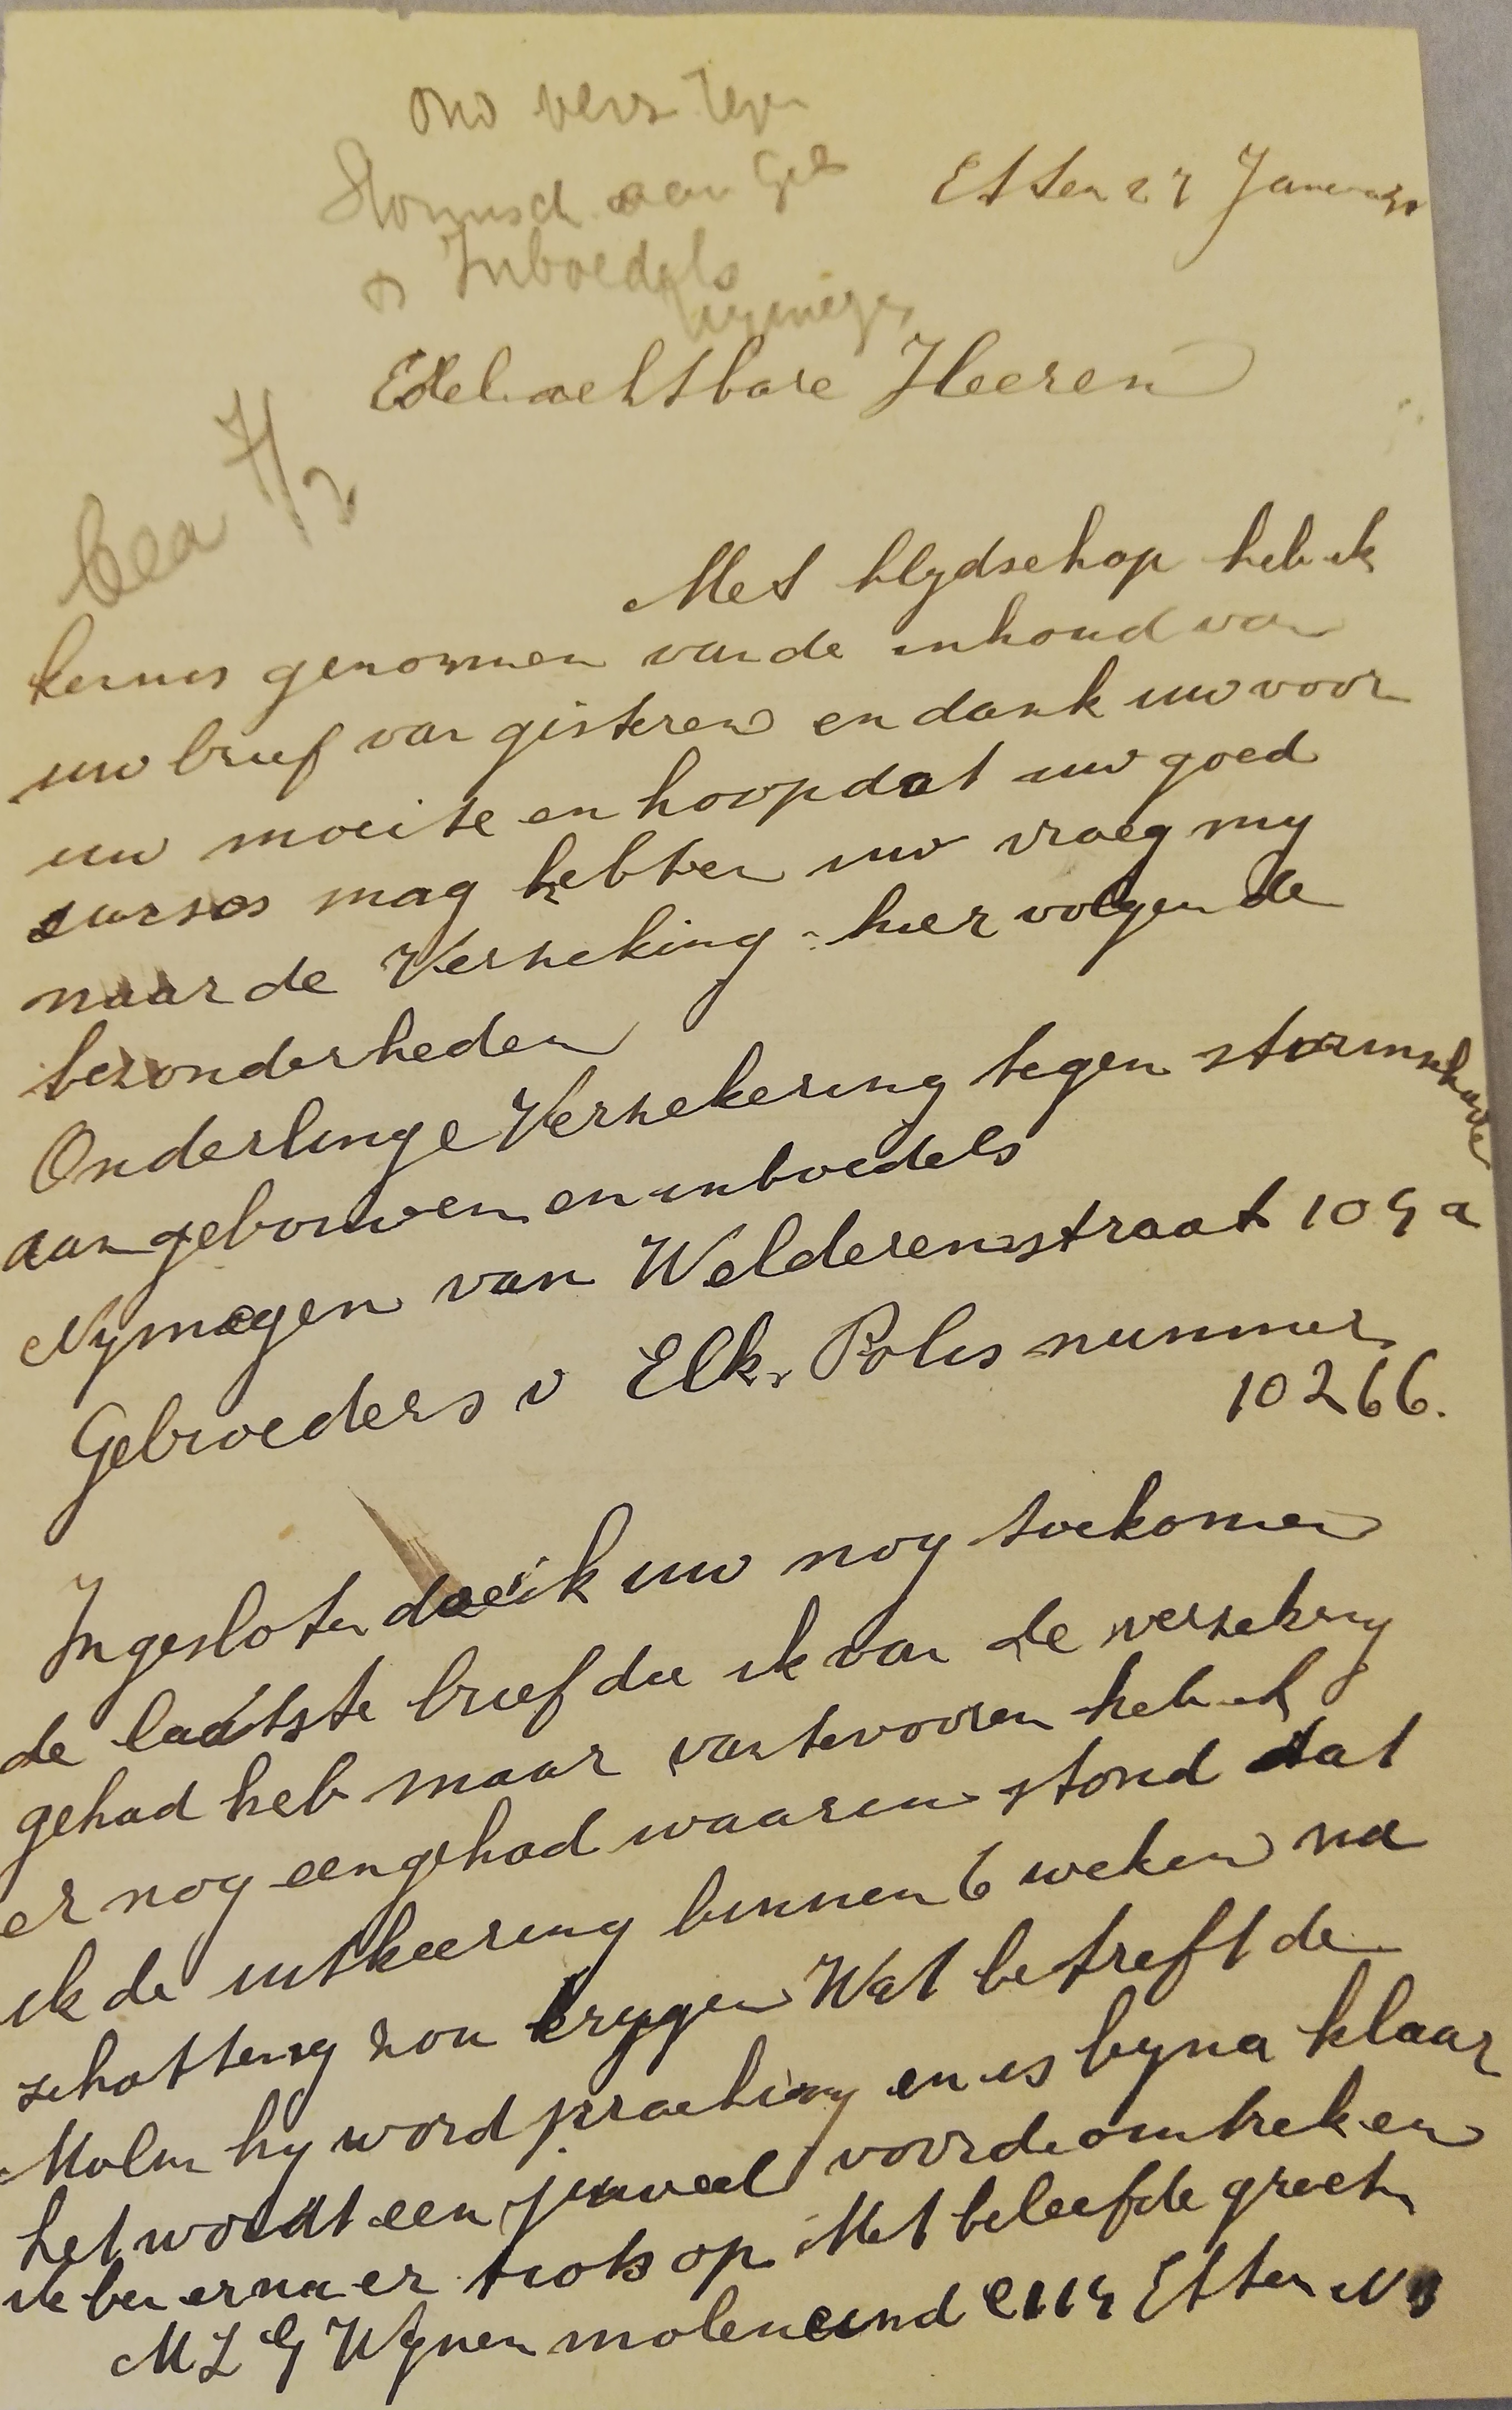 Ond verz tegen
Stormsch. aan Geb
en Inboedels
Nijmegen
Etten 27 Januari
Edelachtbare Heeren
7/2
Met blydschap heb ik
kennis genomen van de inhoud van
uw brief van gisteren en dank uw voor
uw moeite en hoop dat uw goed
surses mag hebben uw vraeg my
naar de Verzeking hier volgen de
bezonderheden
Onderlinge Verzekering tegen stormschade
aan gebouwen en inboedels
Nymegen van Welderensstraat 109 a
Gebroeders v Elk. Polis nummer
10266.
Ingesloten doe ik uw nog toekomen
de laatste brief die ik van de verzekring
gehad heb maar van tevooren heb ik
er nog een gehad waarin stond dat
ik de uitkeering binnen 6 weken na
schatting zou krygen Wat betreft de
Molen hy word prachtig en is byna klaar
het wordt een juweel voor de omtreken
ik ben erna er trots op Met beleefde groeten
M L G Wynen moleneind E114 Etten NB